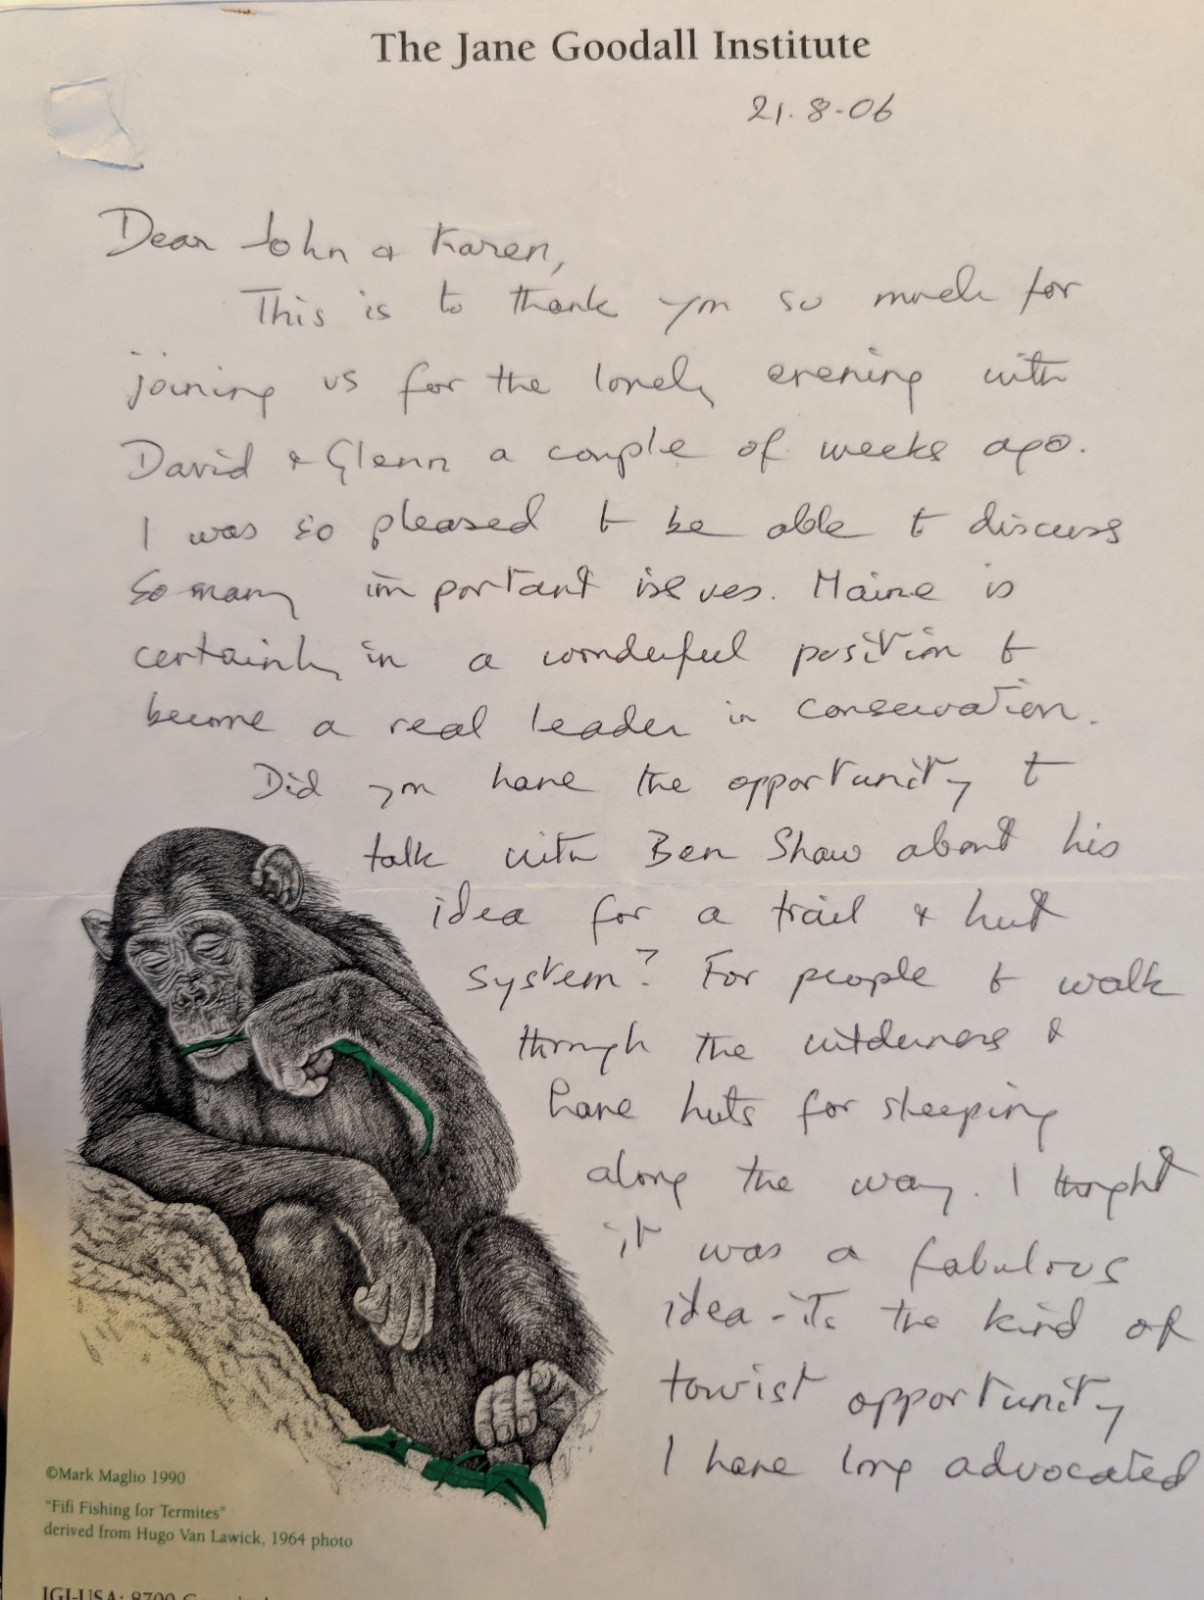 The Jane Goodall Institute
21.8-06
Dear John & Karen,
This is to thank you so much for
joining us for the lovely evening with
David & Glenn a couple of weeks ago.
I was so pleased to be able to discuss
so many important issues. Maine is
certainly in a wonderful position to
become a real leader in conservation.
Did you have the opportunity to
talk with Ben Shaw about his
idea for a trail & hut
system? For people to walk
through the wilderness &
have huts for sleeping
along the way. I thought
it was a fabulous
idea - its the kind of
tourist opportunity
I have long advocated
©Mark Maglio 1990
"Fifi Fishing for Termites"
derived from Hugo Van Lawick, 1964 photo
JGI-USA: 8700